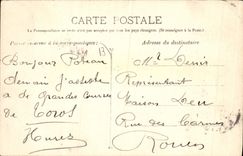 CARTE POSTALE
La Correspondance au recto n'est pas acceptée par tous les pays étrangers (Se renseigner à la Poste)
Partie réservée à la correspondance
Adresse du destinataire
Bonjour
Demain J'assiste
à de Grandes Courses
de Toros
Mr Denis
Représentant
Maison
Rue des Carmes
Rouen